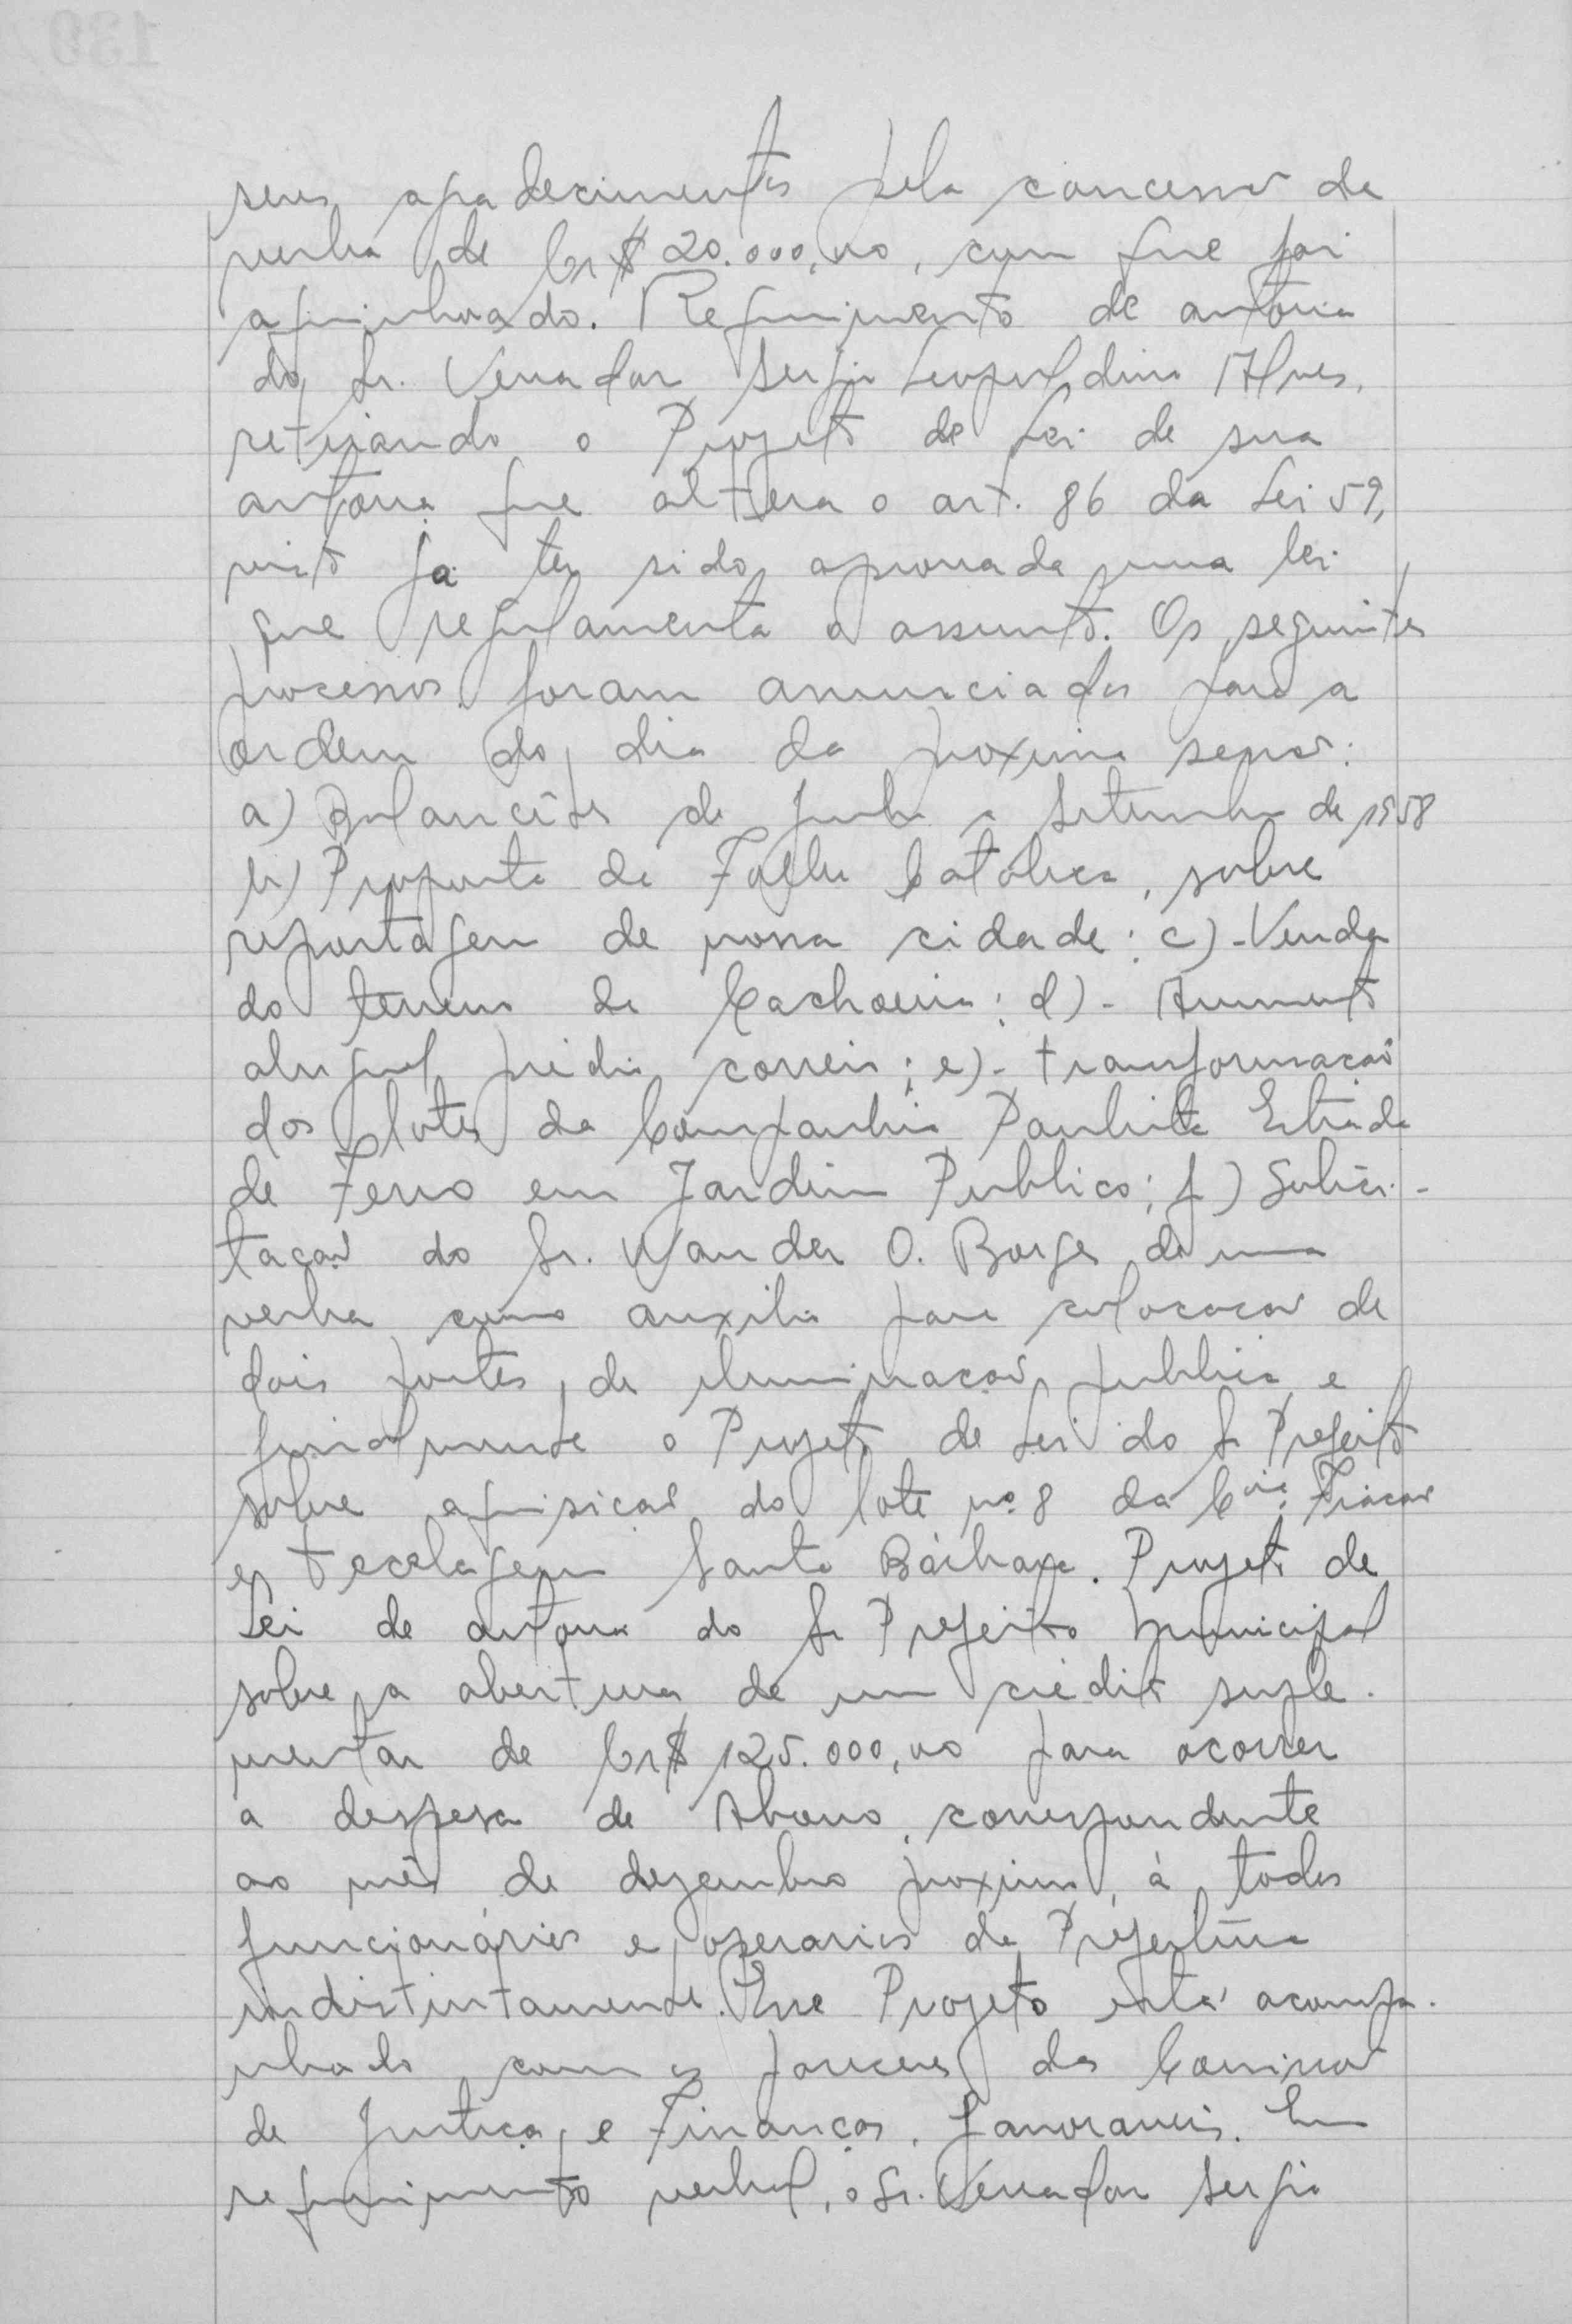 seus agradecimentos pela concessão da
verba de Cr$ 20.000,00, com que foi
aquinhoado. Requerimento de autoria
do Sr. Vereador Sergio Leopoldino Alves,
retirando o Projeto de Lei de sua
autoria que altera o art. 86 da Lei 59,
visto já ter sido aprovada uma lei
que regulamenta o assunto. Os seguintes
processos foram anunciados para a
ordem do dia da proxima sessão:
a) Balancêtes de Junho a Setembro de 1958
b) Proposta da Folha Católica, sobre
reportagem de nossa cidade; c)- Venda
do terreno da Cachoeira; d)- Aumento
aluguel prédio correio; e)- transformação
dos lotes da Companhia Paulista Estrada
de Ferro em Jardim Publico; f) Solici-
tação do Sr. Wander O. Borges de uma
verba como auxilio para colocação de
dois postes de iluminação publica e
finalmente o Projeto de Lei do Sr Prefeito
sobre aquisição do lote nº 8 da Cia. Fiação
e Tecelagem Santa Bárbara. Projeto de
Lei de autoria do Sr Prefeito Municipal
sobre a abertura de um crédito suple-
mentar de Cr$ 125.000,00 para ocorrer
a despesa de Abono, correspondente
ao mês de dezembro proximo, à todos
funcionários e operarios da Prefeitura
indistintamente. Esse Projeto está acompa-
nhado com os pareceres da Comissão
de Justiça e Finanças, favoraveis. Em
requerimento verbal, o Sr. Vereador Sergio